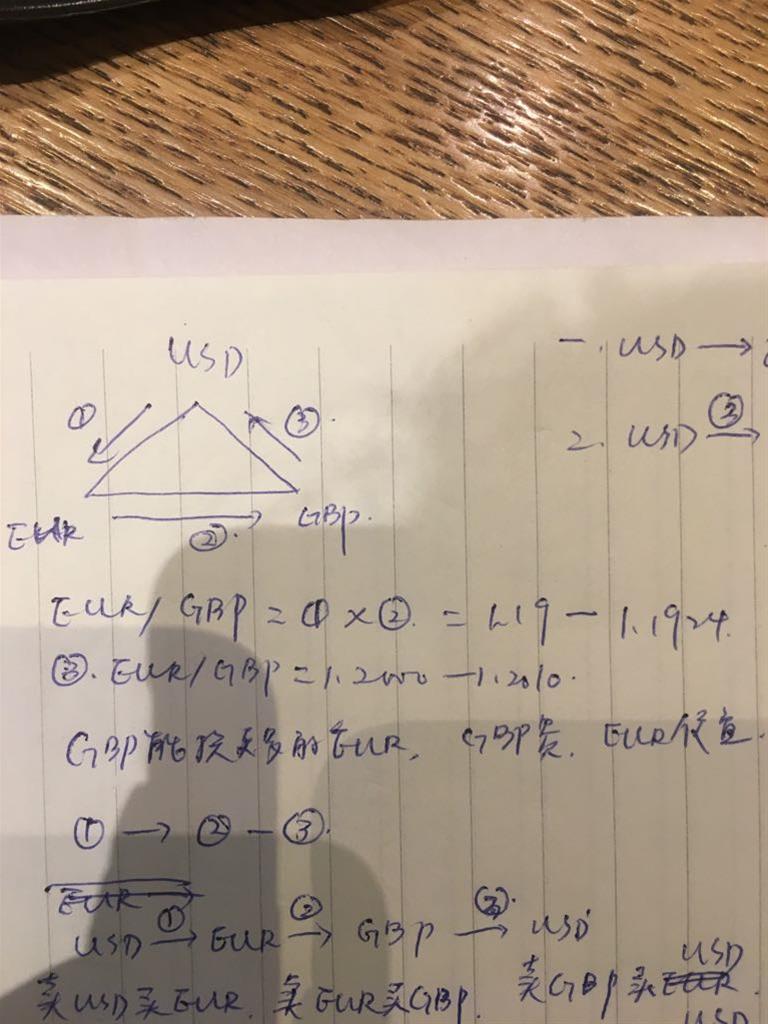 USD
一. USD →
① ③.
2. USD ③→
EUR ②. GBP.
EUR/GBP = ① × ②. = 1.19 — 1.1924.
③. EUR/GBP = 1.2000 — 1.2010.
GBP能换更多的EUR, GBP贵. EUR便宜.
① → ② — ③.
EUR
USD ①→ EUR ②→ GBP ③→ USD
USD
卖USD买EUR. 卖EUR买GBP. 卖GBP买EUR.
USD